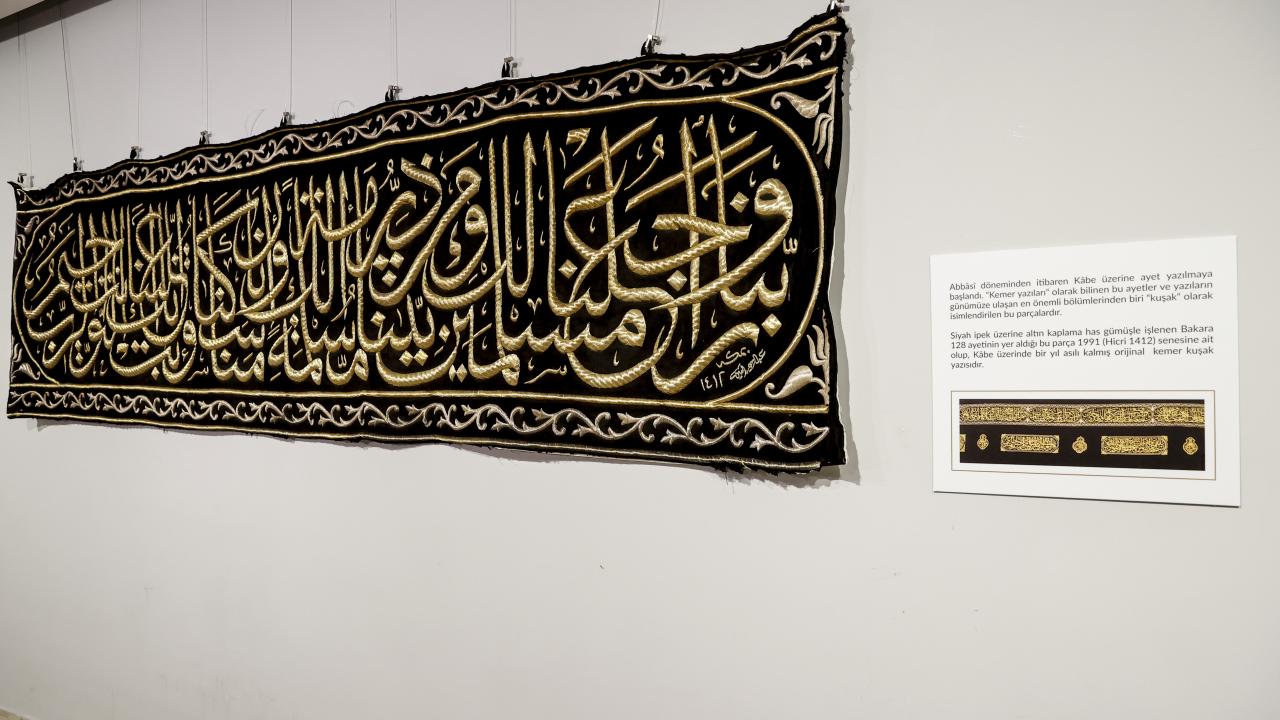 ربنا واجعلنا مسلمين لك ومن ذريتنا امة مسلمة لك وارنا مناسكنا وتب علينا انك انت التواب الرحيم
بمكة
١٤١٢
Abbâsî döneminden itibaren Kâbe üzerine ayet yazılmaya
başlandı. "Kemer yazıları" olarak bilinen bu ayetler ve yazıların
günümüze ulaşan en önemli bölümlerinden biri "kuşak" olarak
isimlendirilen bu parçalardır.
Siyah ipek üzerine altın kaplama has gümüşle işlenen Bakara
128 ayetinin yer aldığı bu parça 1991 (Hicri 1412) senesine ait
olup, Kâbe üzerinde bir yıl asılı kalmış orijinal kemer kuşak
yazısıdır.